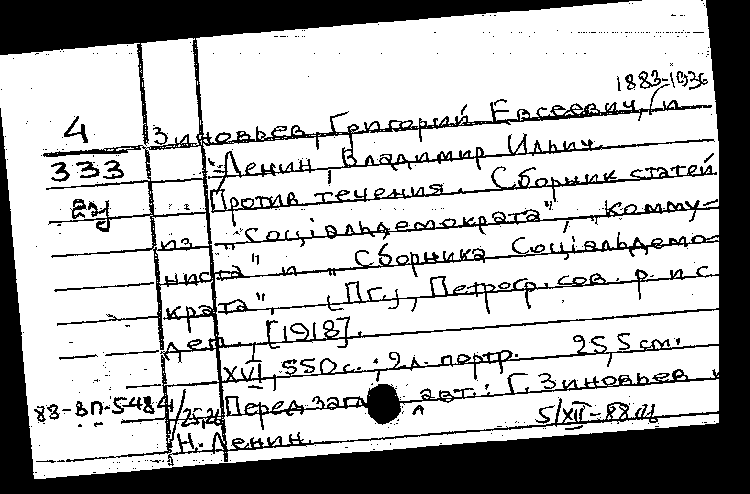 1883-1936
4 Зиновьев, Григорий Евсеевич, и
333 Ленин, Владимир Ильич.
Против течения. Сборник статей
из "Социальдемократа", "Комму-
ниста" и "Сборника Социальдемо-
крата", [Пг.], Петрогр. сов. р. и с.
деп., [1918].
XVI, 550 с.; 2 л. портр. 25,5 см.
88-ВП-5484/25,26 Перед загл. авт.: Г. Зиновьев и
Н. Ленин. 5/XII-88